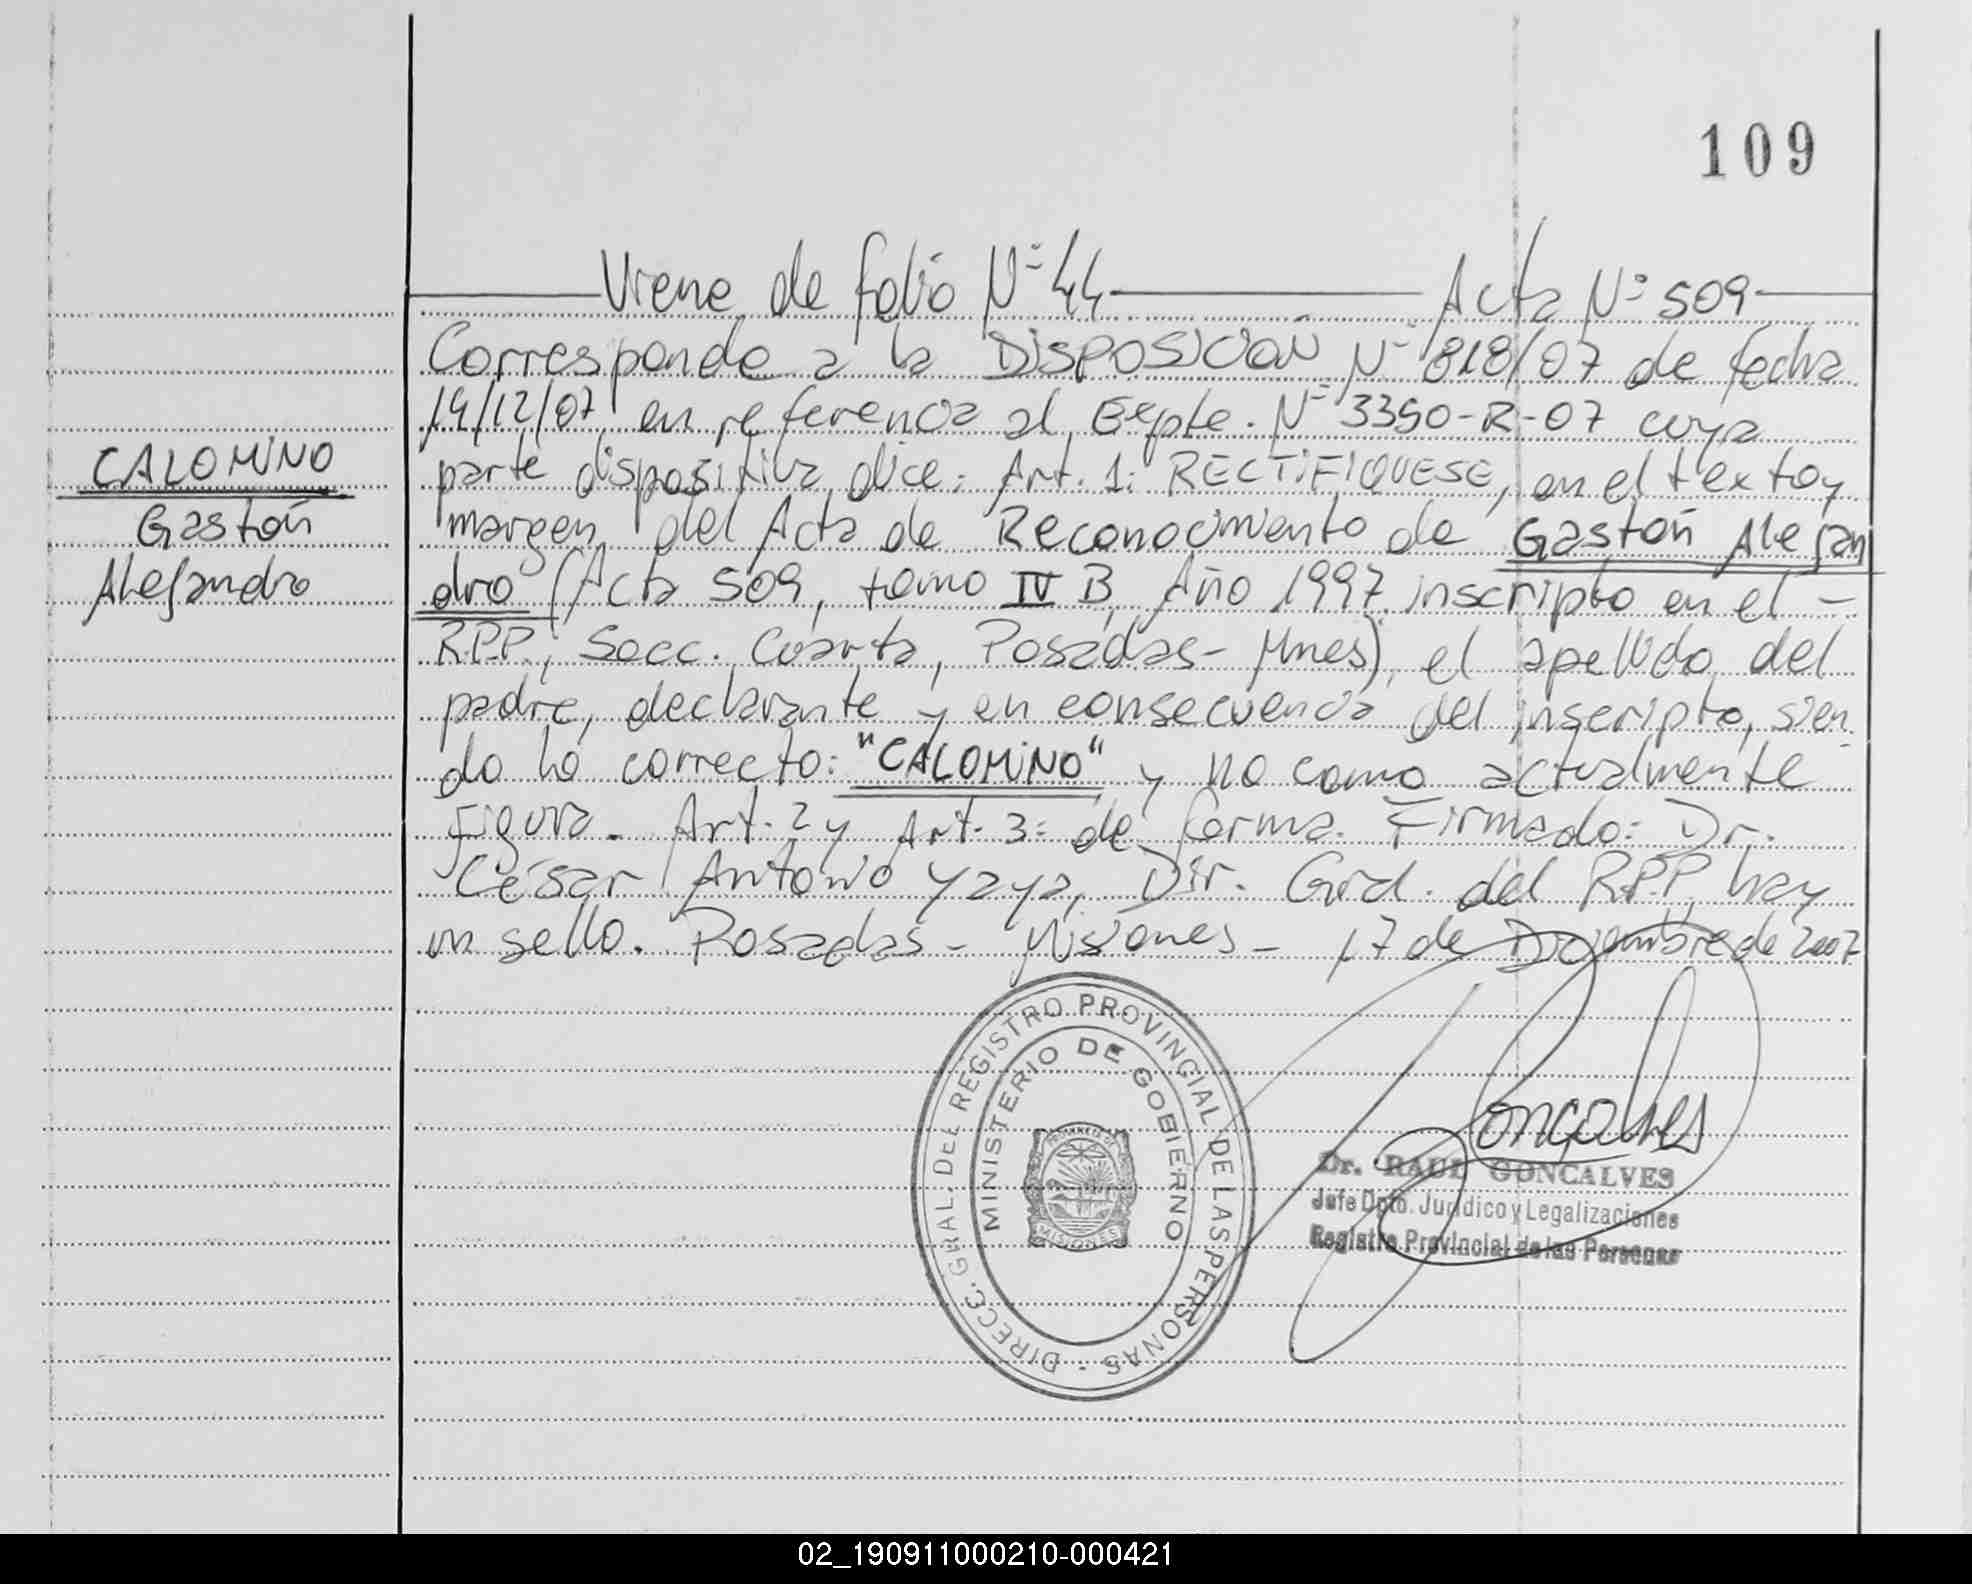 109
Viene de folio Nº 44 Acta Nº 509
Corresponde a la DISPOSICION Nº 818/07 de fecha
14/12/07, en referencia al Expte. Nº 3350-R-07 cuya
parte dispositiva dice: Art. 1: RECTIFIQUESE, en el texto y
margen del Acta de Reconocimiento de Gastón Alejan
dro (Acta 509, tomo IV B, Año 1997 inscripto en el -
R.P.P, Secc. Cuarta, Posadas- Mnes), el apellido del
padre, declarante y en consecuencia del inscripto, sien
do lo correcto: "CALOMINO" y no como actualmente
Figura. Art. 2 y Art. 3: de forma. Firmado: Dr.
César Antonio Yaya, Dir. Gral. del R.P.P, hay
un sello. Posadas - Misiones - 17 de Diciembre de 2007
CALOMINO
Gastón
Alejandro
DIRECC. GRAL. DEL REGISTRO PROVINCIAL DE LAS PERSONAS -
MINISTERIO DE GOBIERNO
MISIONES
Goncalves
Dr. RAUL GONCALVES
Jefe Dpto. Jurídico y Legalizaciones
Registro Provincial de las Personas
02_190911000210-000421